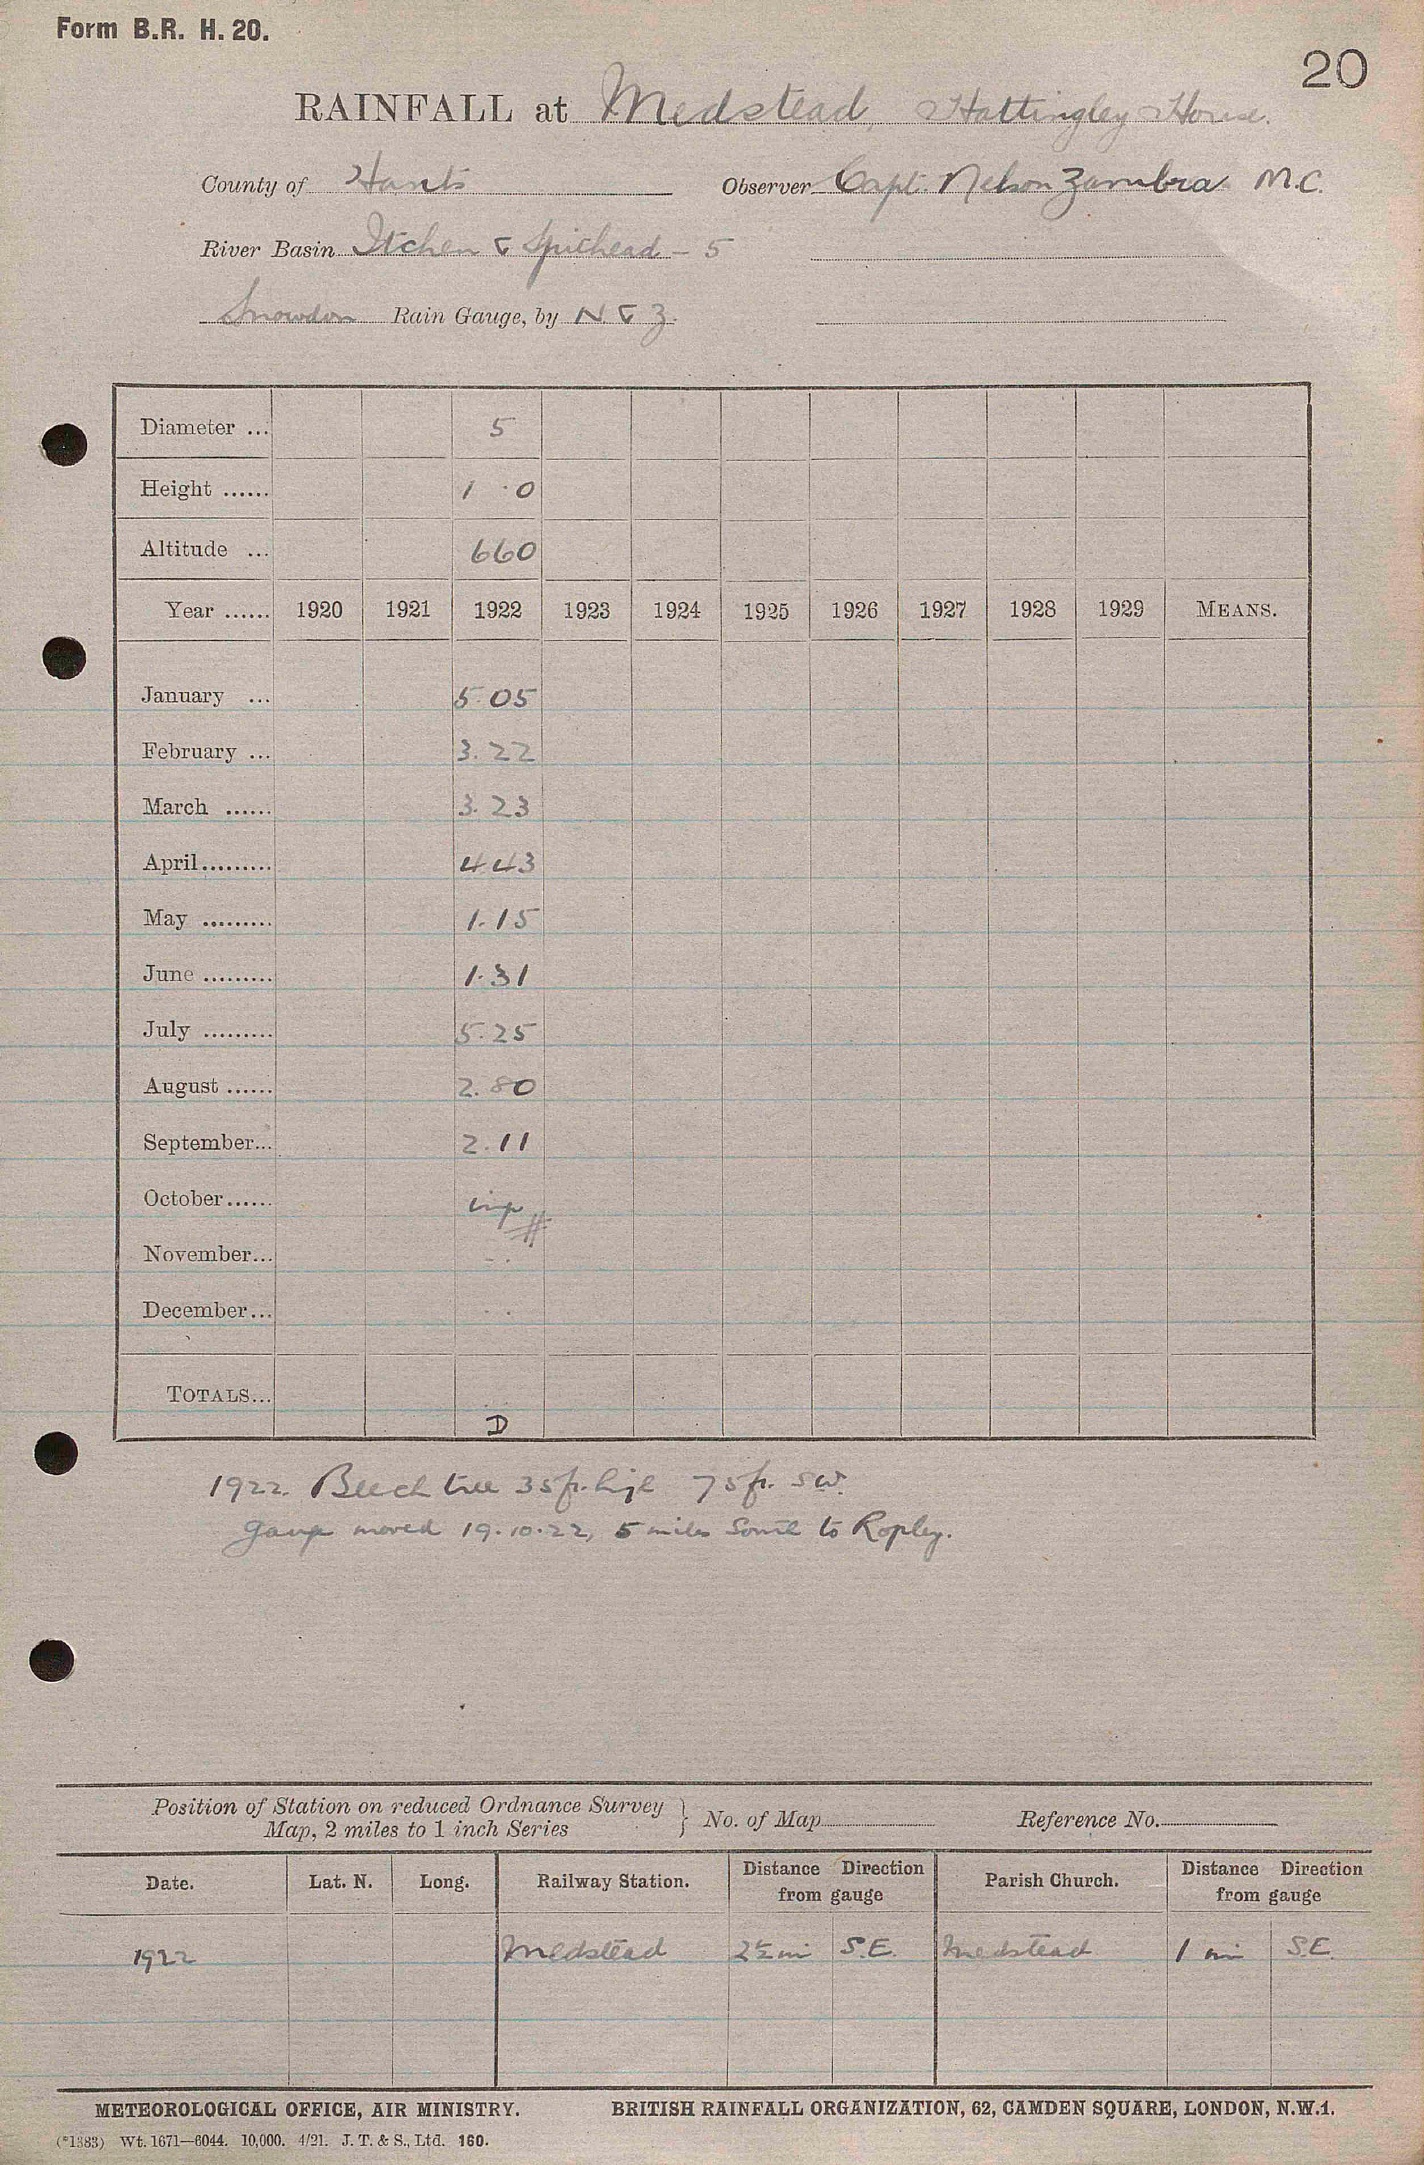 Form B.R. H. 20.
20
RAINFALL at Medstead, Hattingley House.
County of Hants Observer Capt. Nelson Zambra M.C.
River Basin Itchen & Spithead - 5
Snowdon Rain Gauge, by N & Z.
Diameter ... 5
Height ...... 1 . 0
Altitude ... 660
Year ...... 1920 1921 1922 1923 1924 1925 1926 1927 1928 1929 MEANS.
January ... 5.05
February ... 3.22
March ...... 3.23
April......... 4.43
May ......... 1.15
June ......... 1.31
July ......... 5.25
August ...... 2.80
September... 2.11
October...... imp #
November... - .
December... . .
TOTALS...
D
1922. Beech tree 35 ft. high 75 ft. SW.
Gauge moved 19.10.22, 5 miles South to Ropley.
Position of Station on reduced Ordnance Survey
Map, 2 miles to 1 inch Series } No. of Map Reference No.
Date. Lat. N. Long. Railway Station. Distance Direction from gauge Parish Church. Distance Direction from gauge
1922 Medstead 2½ mi S.E. Medstead 1 mi S.E.
METEOROLOGICAL OFFICE, AIR MINISTRY. BRITISH RAINFALL ORGANIZATION, 62, CAMDEN SQUARE, LONDON, N.W.1.
(*1383) Wt. 1671—6044. 10,000. 4/21. J. T. & S., Ltd. 160.